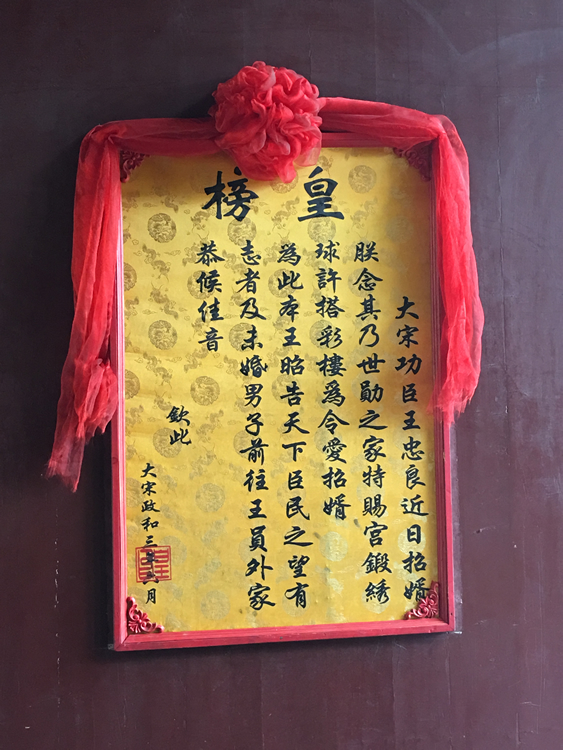 皇榜
大宋功臣王忠良近日招婿
朕念其乃世勛之家特賜宫鍛綉
球許搭彩樓爲令愛招婿
為此本王昭告天下臣民之望有
志者及未婚男子前往王員外家
恭候佳音
欽此
大宋政和三年 月